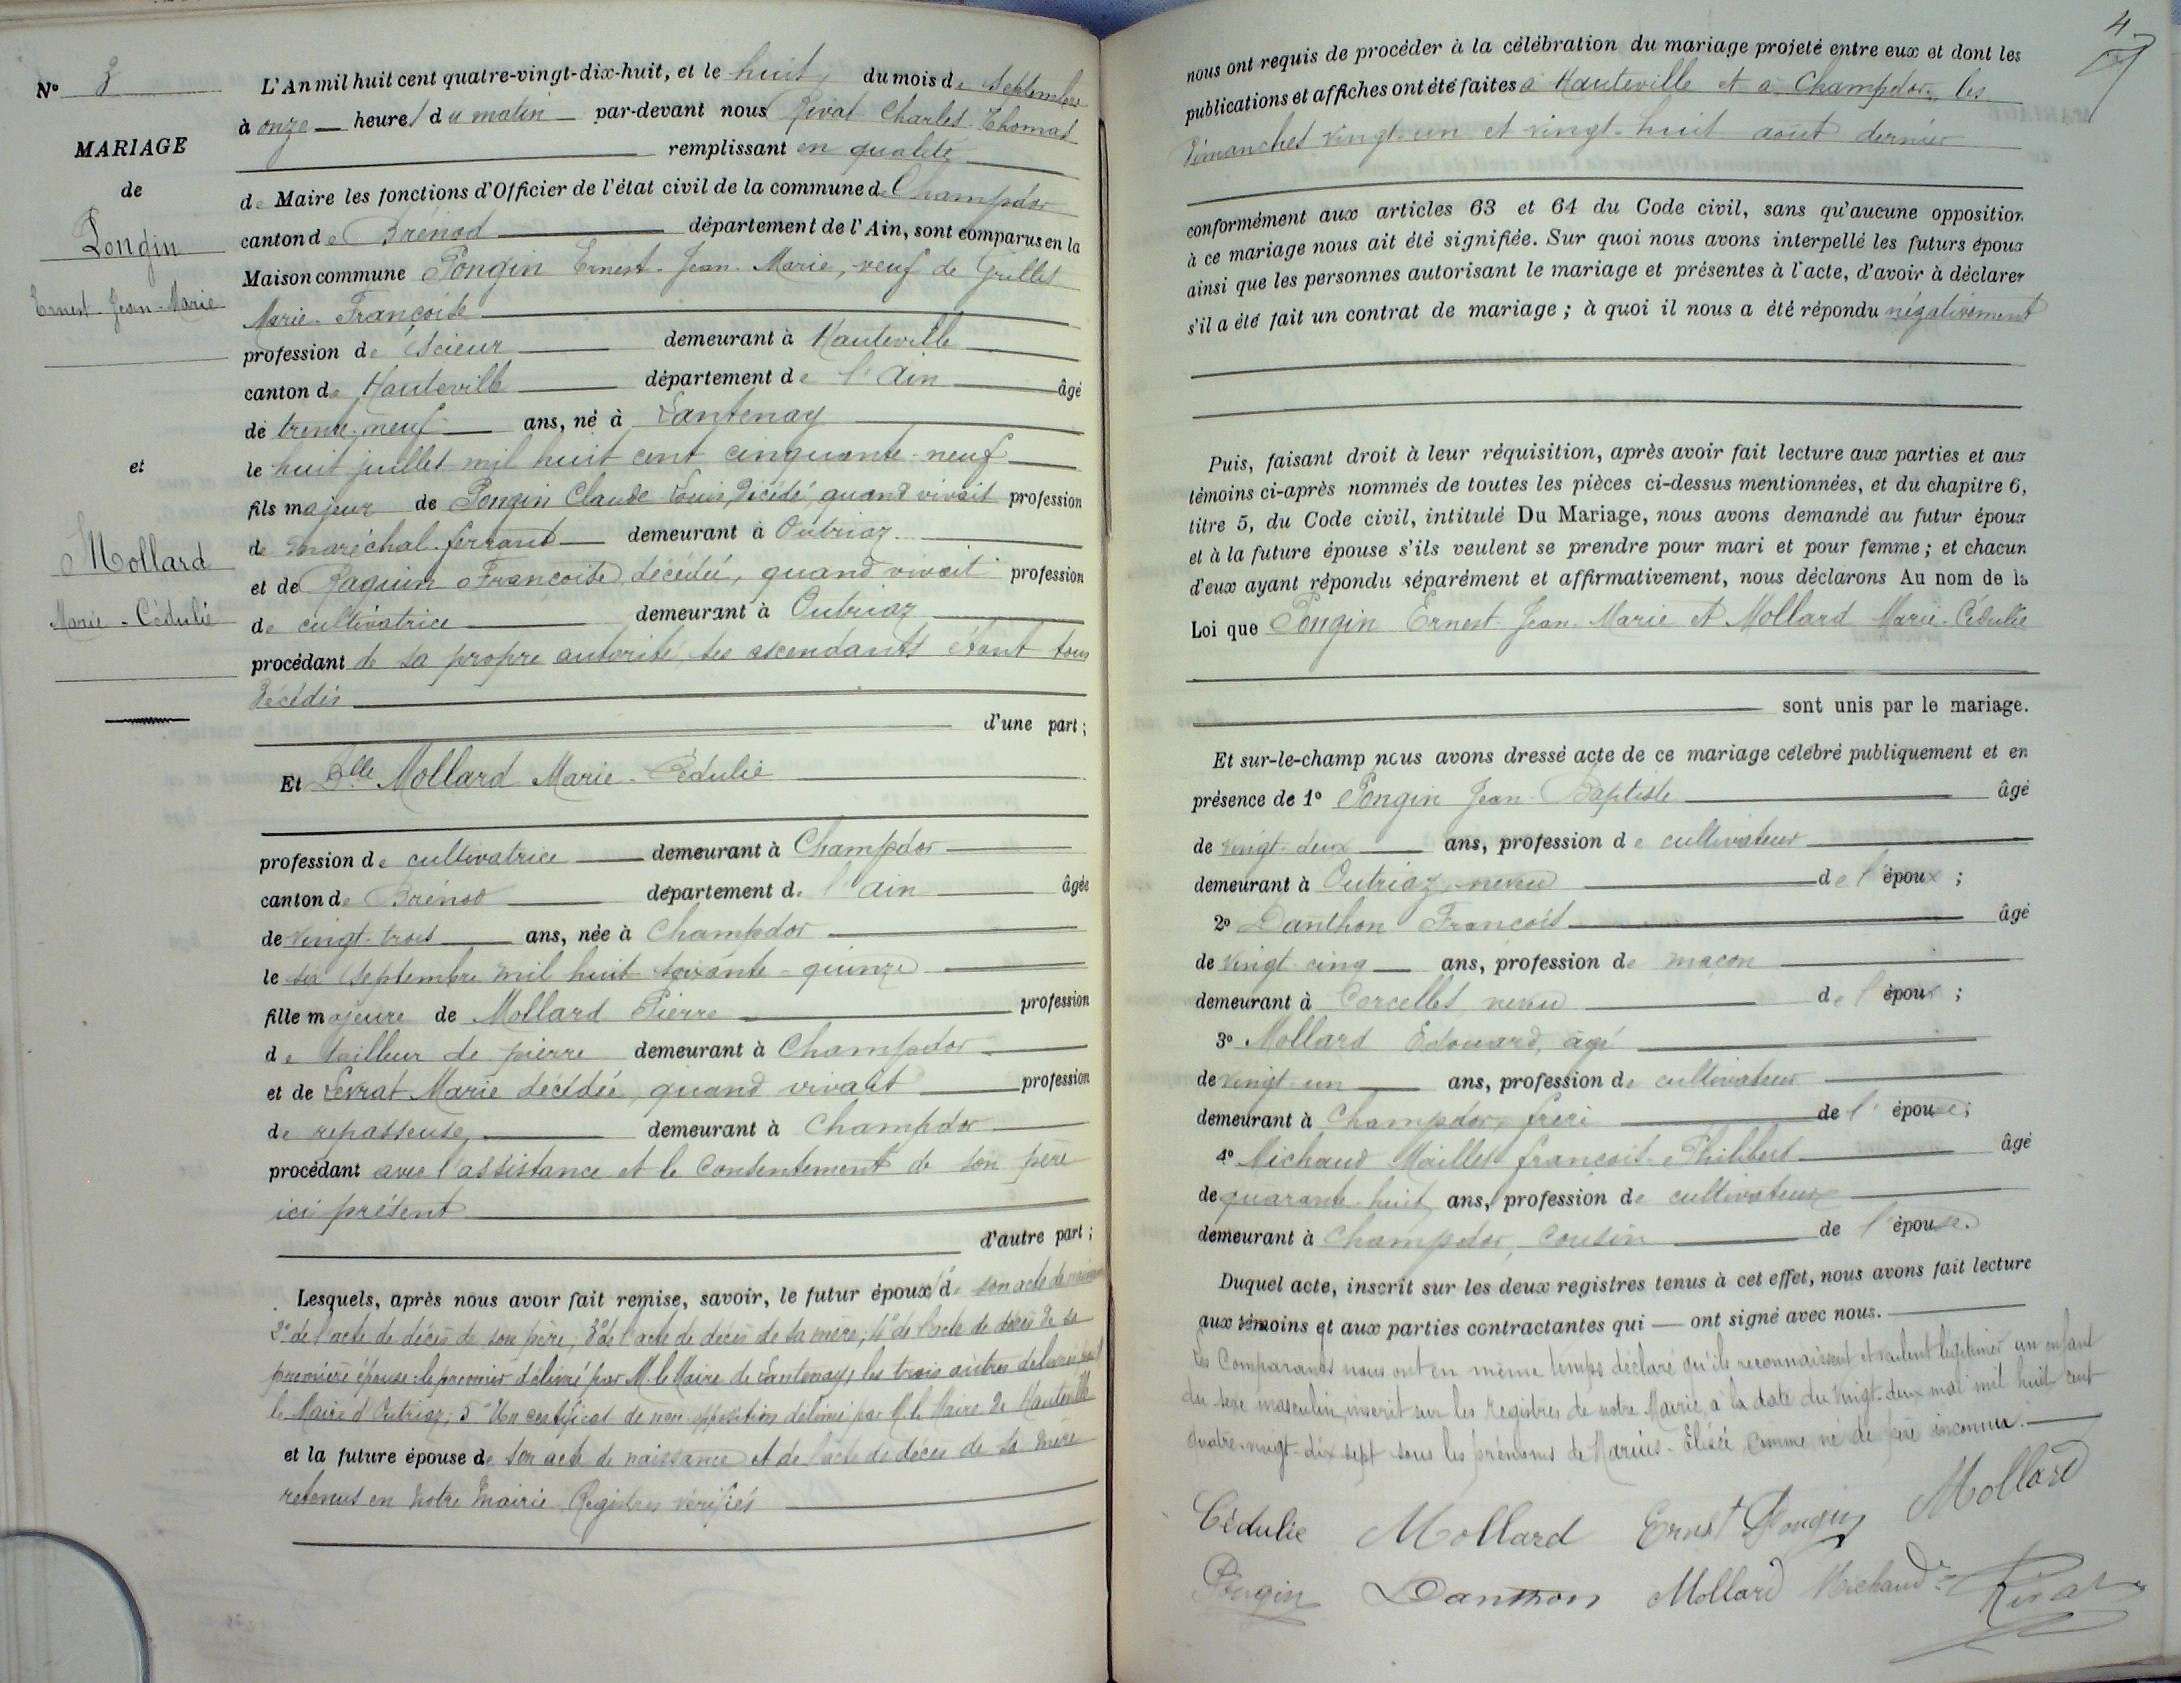 N° 3
MARIAGE
de
Pongin
Ernest-Jean-Marie
et
Mollard
Marie-Cédulie
L'An mil huit cent quatre-vingt-dix-huit, et le huit du mois de Septembre
à onze heures du matin par-devant nous Rivat Charles Thomas
remplissant en qualité
de Maire les fonctions d'Officier de l'état civil de la commune de Champdor
canton de Brénod département de l'Ain, sont comparus en la
Maison commune Pongin Ernest-Jean-Marie, veuf de Grillet
Marie-Françoise
profession de scieur demeurant à Hauteville
canton de Hauteville département de l'Ain âgé
de trente-neuf ans, né à Lantenay
le huit juillet mil huit cent cinquante-neuf
fils majeur de Pongin Claude Louis, décédé, quand vivait profession
de maréchal-ferrant demeurant à Outriaz
et de Raquin Françoise, décédée, quand vivait profession
de cultivatrice demeurant à Outriaz
procédant de sa propre autorité, ses ascendants étant tous
décédés
d'une part ;
Et Dlle Mollard Marie-Cédulie
profession de cultivatrice demeurant à Champdor
canton de Brénod département de l'Ain âgée
de vingt-trois ans, née à Champdor
le six septembre mil huit soixante-quinze
fille majeure de Mollard Pierre profession
de tailleur de pierre demeurant à Champdor
et de Levrat Marie décédée, quand vivait profession
de repasseuse demeurant à Champdor
procédant avec l'assistance et le consentement de son père
ici présent
d'autre part ;
Lesquels, après nous avoir fait remise, savoir, le futur époux 1° de son acte de naissance
2° de l'acte de décès de son père; 3° de l'acte de décès de sa mère; 4° de l'acte de décès de sa
première épouse le premier délivré par M. le Maire de Lantenay, les trois autres délivrés par
le Maire d'Outriaz; 5° Un certificat de non opposition délivré par M. le Maire de Hauteville
et la future épouse de son acte de naissance et de l'acte de décès de sa mère
retenus en notre Mairie Registres vérifiés
4
nous ont requis de procéder à la célébration du mariage projeté entre eux et dont les
publications et affiches ont été faites à Hauteville et à Champdor, les
dimanches vingt-un et vingt-huit août dernier
conformément aux articles 63 et 64 du Code civil, sans qu'aucune opposition
à ce mariage nous ait été signifiée. Sur quoi nous avons interpellé les futurs époux
ainsi que les personnes autorisant le mariage et présentes à l'acte, d'avoir à déclarer
s'il a été fait un contrat de mariage ; à quoi il nous a été répondu négativement
Puis, faisant droit à leur réquisition, après avoir fait lecture aux parties et aux
témoins ci-après nommés de toutes les pièces ci-dessus mentionnées, et du chapitre 6,
titre 5, du Code civil, intitulé Du Mariage, nous avons demandé au futur époux
et à la future épouse s'ils veulent se prendre pour mari et pour femme ; et chacun
d'eux ayant répondu séparément et affirmativement, nous déclarons Au nom de la
Loi que Pongin Ernest-Jean-Marie et Mollard Marie-Cédulie
sont unis par le mariage.
Et sur-le-champ nous avons dressé acte de ce mariage célébré publiquement et en
présence de 1° Pongin Jean-Baptiste âgé
de vingt-deux ans, profession de cultivateur
demeurant à Outriaz, neveu de l'époux ;
2° Danthon François âgé
de vingt-cinq ans, profession de maçon
demeurant à Corcelles, neveu de l'époux ;
3° Mollard Edouard, âgé
de vingt-un ans, profession de cultivateur
demeurant à Champdor, frère de l'épouse ;
4° Michaud Maillet françois-Philibert âgé
de quarante-huit ans, profession de cultivateur
demeurant à Champdor, cousin de l'épouse.
Duquel acte, inscrit sur les deux registres tenus à cet effet, nous avons fait lecture
aux témoins et aux parties contractantes qui ont signé avec nous.
Les Comparants nous ont en même temps déclaré qu'ils reconnaissent et veulent légitimer un enfant
du sexe masculin, inscrit sur les registres de notre Mairie, à la date du Vingt-deux mai mil huit cent
quatre-vingt-dix sept sous les prénoms de Marius-Élisée comme né de père inconnu.
Cédulie Mollard Ernest Pongin Mollard
Pongin Danthon Mollard Michaud Rivat